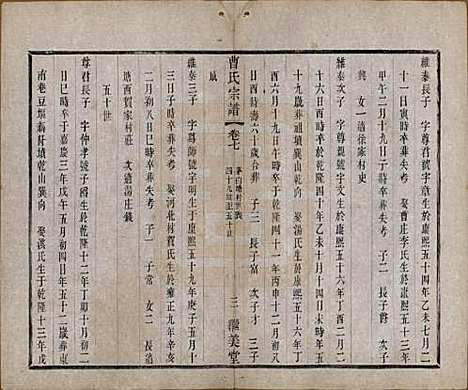 維泰長子 字尊君號字章生於康熙五十一年壬辰七月二
十一日寅時卒葬失考 娶曹庄李氏生於康熙五十三年
甲午二月十九日子時卒葬失考 子二 長子爵 次子
興 女一適徐家村史
維泰次子 字尊賢號字文生於康熙五十六年丁酉二月
十六日亥時卒於乾隆四十年乙未十月十四日亥時
十九歲葬通墳巽山乾向 娶湯氏生於康熙五十六年丁
酉六月十九日午時卒於乾隆四十一年丙申五月初四
日酉時壽六十歲葬 子三 長子富 次子才 三子
斌
曹氏宗譜
卷七
四十九世至五十世
三
繼美堂
維泰三子 字尊師號 生於康熙五十九年庚子五月十
三日子時卒葬失考 娶河北村賀氏生於雍正九年辛亥
二月初八日戌時卒葬失考 子一 子常 女二 長適
塘西賀家村莊 次適湯庄錢
五十世
尊君長子 字仲孝號子爵生於乾隆十二年丁卯十月初二
日巳時卒於嘉慶三年戊午五月初四日 五十二歲葬東
南巷豆墟蕩圩墳乾山巽向 娶溪氏生於乾隆十三年戊